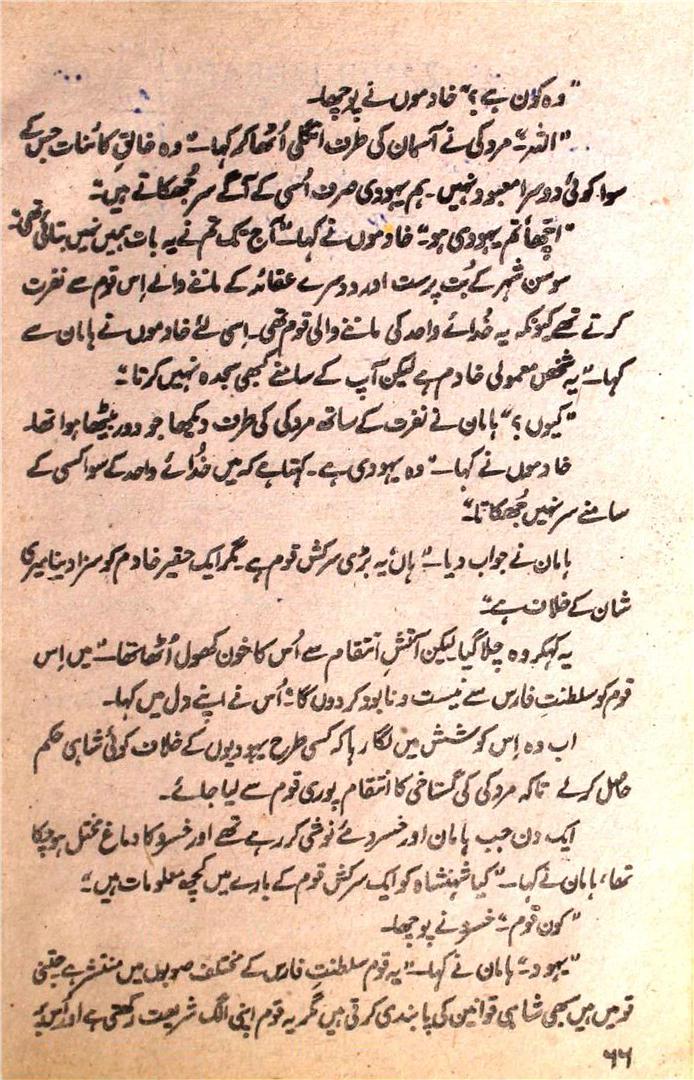 "وہ کون ہے؟" خادموں نے پوچھا۔
"اللہ۔" مردکی نے آسمان کی طرف انگلی اُٹھا کر کہا۔ "وہ خالقِ کائنات جس کے
سوا کوئی دوسرا معبود نہیں۔ ہم یہودی صرف اُسی کے آگے سر جُھکاتے ہیں۔"
"اچّھا تم یہودی ہو۔" خادموں نے کہا۔ "آج تک تم نے یہ بات ہمیں نہیں بتائی تھی۔"
سوسن شہر کے بُت پرست اور دوسرے عقائد کے ماننے والے اِس قوم سے نفرت
کرتے تھے کیونکہ یہ خُدائے واحد کی ماننے والی قوم تھی۔ اِسی لئے خادموں نے ہامان سے
کہا۔ "یہ شخص معمولی خادم ہے لیکن آپ کے سامنے کبھی سجدہ نہیں کرتا۔"
"کیوں؟" ہامان نے نفرت کے ساتھ مردکی کی طرف دیکھا جو دور بیٹھا ہوا تھا۔
خادموں نے کہا۔ "وہ یہودی ہے۔ کہتا ہے کہ میں خُدائے واحد کے سوا کسی کے
سامنے سر نہیں جُھکاتا۔"
ہامان نے جواب دیا۔ "ہاں یہ بڑی سرکش قوم ہے۔ مگر ایک حقیر خادم کو سزا دینا میری
شان کے خلاف ہے۔"
یہ کہکر وہ چلا گیا لیکن آتشِ انتقام سے اُس کا خون کھول اُٹھا تھا۔ "میں اِس
قوم کو سلطنتِ فارس سے نیست و نابود کر دوں گا۔" اُس نے اپنے دل میں کہا۔
اب وہ اِس کوشش میں لگا رہا کہ کسی طرح یہودیوں کے خلاف کوئی شاہی حکم
حاصل کرلے تاکہ مردکی کی گستاخی کا انتقام پوری قوم سے لیا جائے۔
ایک دن جب ہامان اور خسرو مئے نوشی کر رہے تھے اور خسرو کا دماغ مختل ہو چکا
تھا، ہامان نے کہا۔ "کیا شہنشاہ کو ایک سرکش قوم کے بارے میں کچھ معلومات ہیں۔"
"کون قوم۔" خسرو نے پوچھا۔
"یہود۔" ہامان نے کہا۔ "یہ قوم سلطنتِ فارس کے مختلف صوبوں میں منتشر ہے جتنی
قومیں ہیں سبھی شاہی قوانین کی پابندی کرتی ہیں مگر یہ قوم اپنی الگ شریعت رکھتی ہے اور اُس پر
۶۶